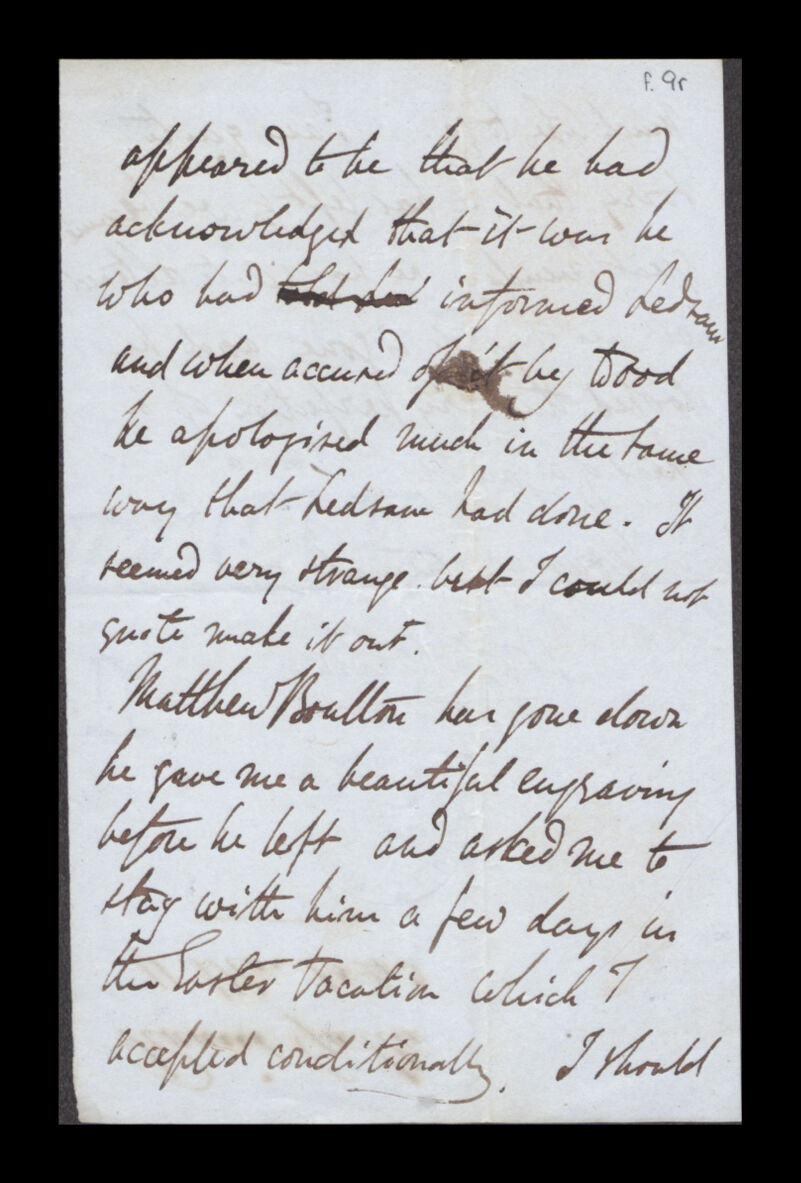 f. 9r
appeared to be that he had
acknowledged that it was he
who had told him informed Ledsam
and when accused of it by Wood
he apologised much in the same
way that Ledsam had done. It
seemed very strange. but I could not
quote make it out.
Matthew Boulton has gone down
he gave me a beautiful engraving
before he left and asked me to
stay with him a few days in
the Easter Vacation which I
accepted conditionally. I should